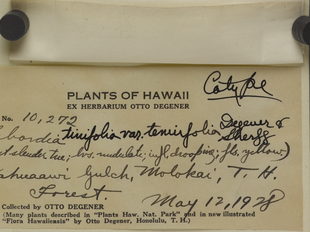 Cotype
PLANTS OF HAWAII
EX HERBARIUM OTTO DEGENER
No. 10,272
Degener &
Sherff
tinifolia var. tenuifolia
slender tree; lvs. undulate; infl. drooping; fls. yellow;
Gulch, Molokai, T. H.
Forest.
May 12, 1928
Collected by OTTO DEGENER
(Many plants described in "Plants Haw. Nat. Park" and in new illustrated
"Flora Hawaiiensis" by Otto Degener, Honolulu, T. H.)